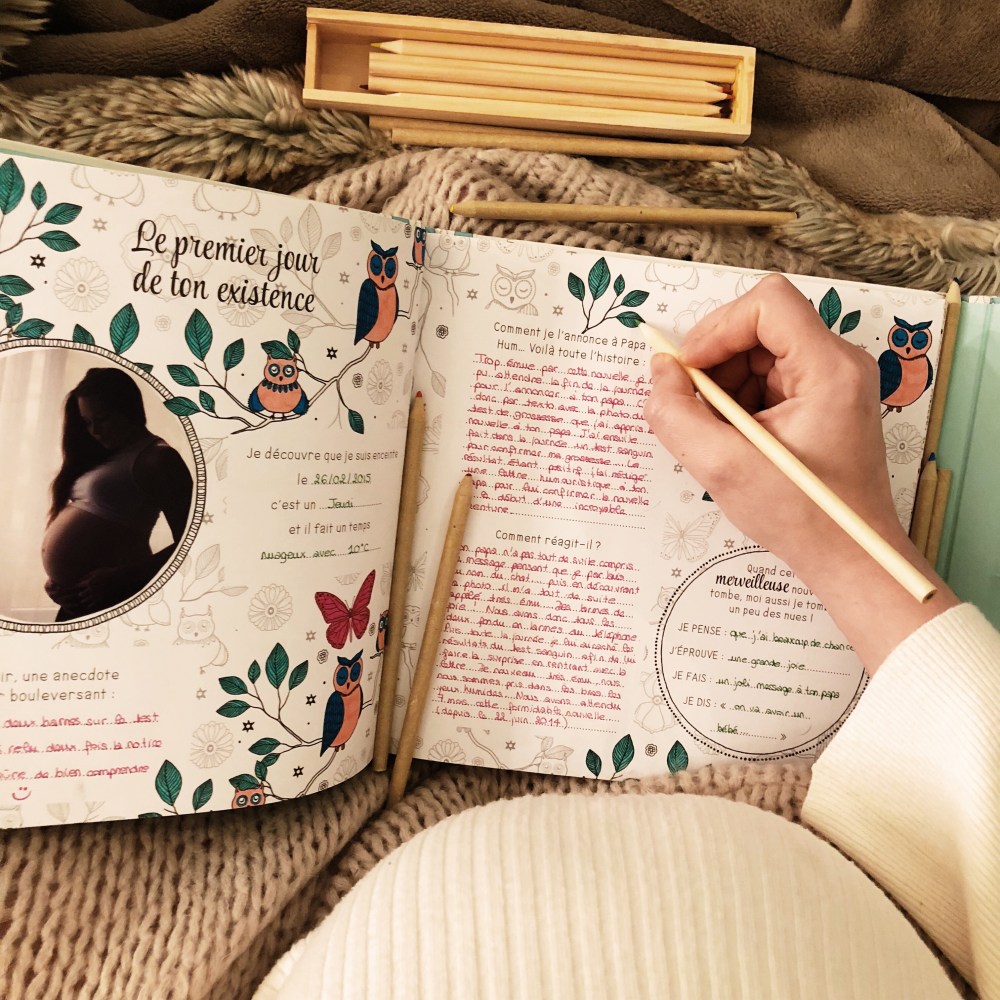 Le premier jour
de ton existence
Je découvre que je suis enceinte
le 26/02/2015
c'est un Jeudi
et il fait un temps
nuageux avec 10°C
ir, une anecdote
r bouleversant :
deux barres sur le test
relu deux fois la notice
de bien comprendre
Comment je l'annonce à Papa
Hum... Voilà toute l'histoire :
Trop émue par cette nouvelle, je
pu attendre la fin de la journée
pour l'annoncer à ton papa. C'
donc par texto avec la photo du
test de grossesse que j'ai appris
nouvelle à ton papa. J'ai ensuite
fait dans la journée un test sanguin
pour confirmer ma grossesse. Le
résultat étant positif j'ai rédigé
une lettre humouristique à ton
papa pour lui confirmer la nouvelle
le début d'une incroyable
venture.
Comment réagit-il ?
on papa n'a pas tout de suite compris
message pensant que je parlais
du nom du chat... puis en découvrant
photo il m'a tout de suite
appelé très ému des larmes de
joie ! Nous avons donc tous les
deux fondu en larmes au téléphone
toute la journée je lui ai caché les
résultats du test sanguin afin de lui
faire la surprise en rentrant avec la
lettre. De nouveau très ému nous
nous sommes pris dans les bras les
yeux humides. Nous avons attendu
mois cette formidable nouvelle
(depuis le 22 juin 2014).
Quand cet
merveilleuse nou
tombe, moi aussi je tom
un peu des nues !
JE PENSE : que j'ai beaucoup de chance
J'ÉPROUVE : une grande joie
JE FAIS : un joli message à ton papa
JE DIS : « on va avoir un
bébé »